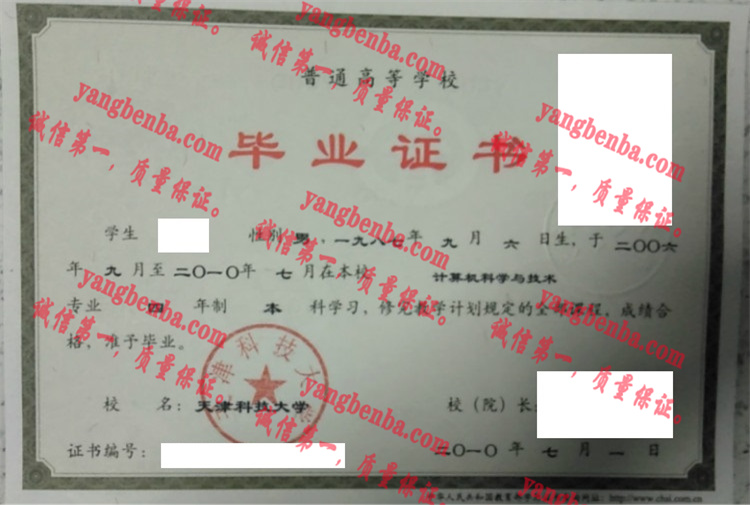 普通高等学校
毕业证书
学生 性别 男,一九八七年 九 月 六 日生,于 二〇〇六
年 九 月至 二〇一〇年 七 月在本校 计算机科学与技术
专业 四 年制 本 科学习,修完教学计划规定的全部课程,成绩合
格,准予毕业。
天津科技大学
校 名:天津科技大学 校(院)长:
证书编号: 二〇一〇 年 七 月 一 日
中华人民共和国教育部学历证书查询网址:http://www.chsi.com.cn
yangbenba.com
诚信第一,质量保证。
yangbenba.com
诚信第一,质量保证。
yangbenba.com
诚信第一,质量保证。
yangbenba.com
诚信第一,质量保证。
yangbenba.com
诚信第一,质量保证。
yangbenba.com
诚信第一,质量保证。
yangbenba.com
诚信第一,质量保证。
yangbenba.com
诚信第一,质量保证。
yangbenba.com
诚信第一,质量保证。